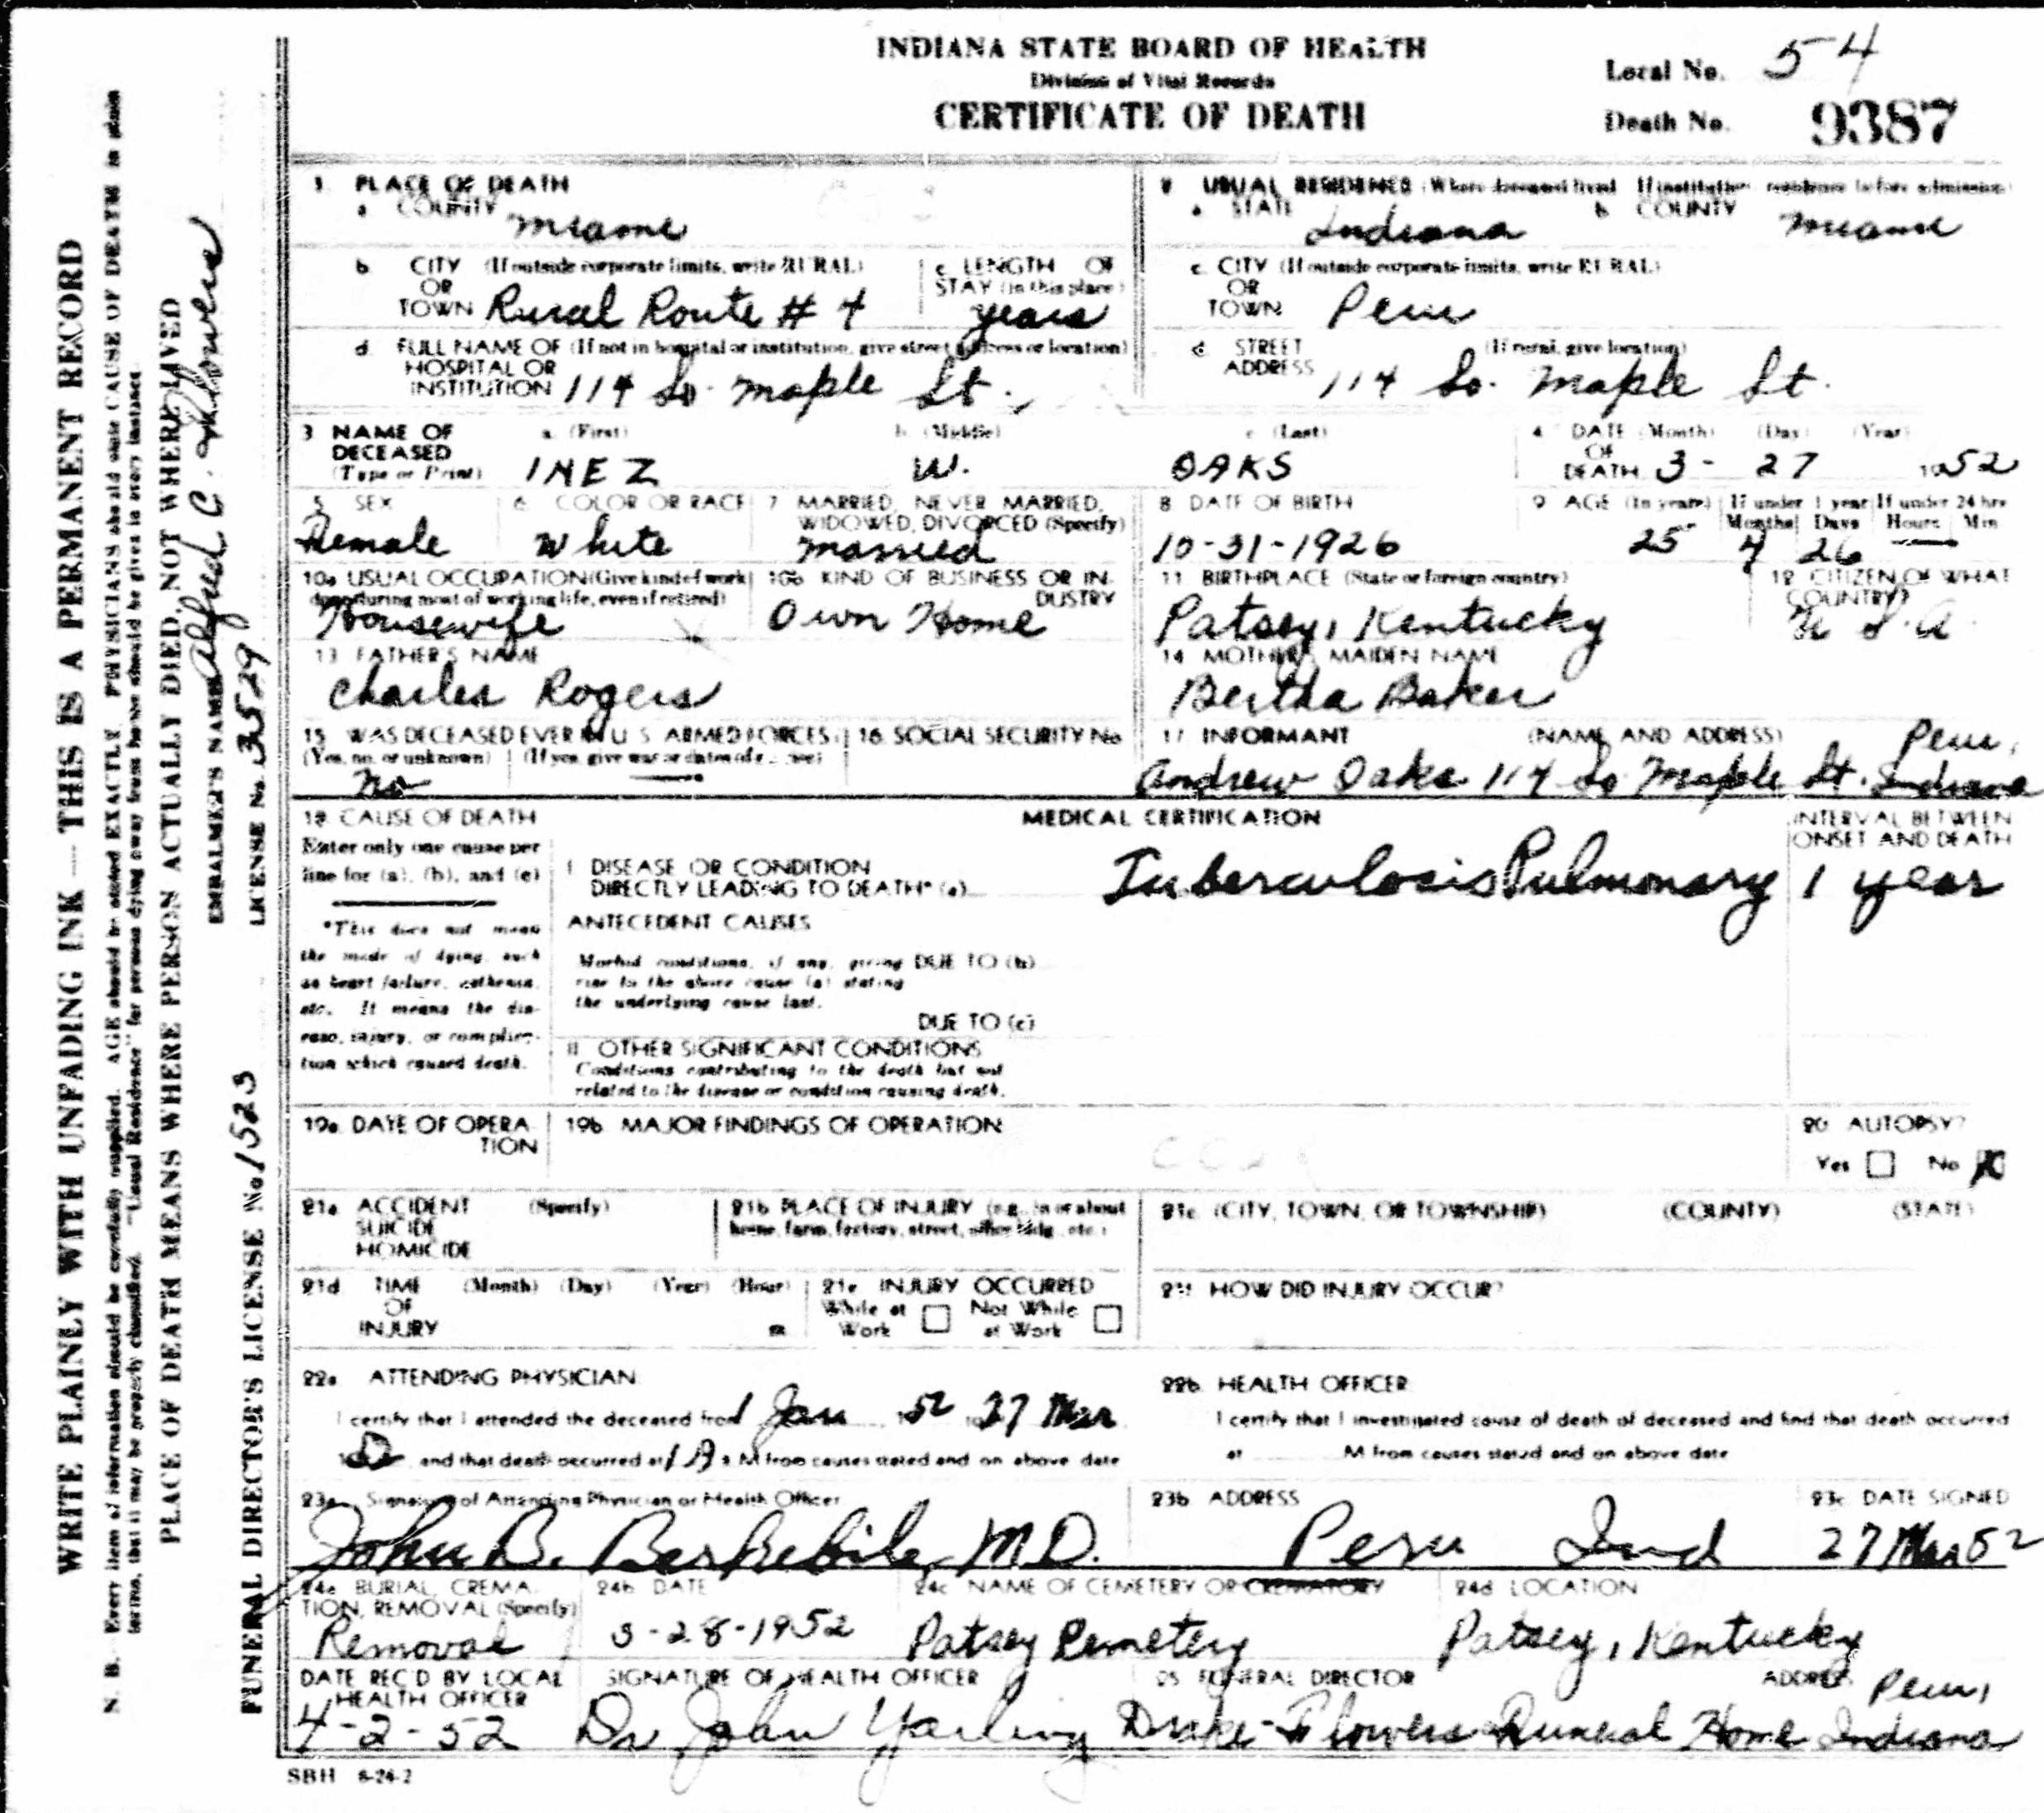 INDIANA STATE BOARD OF HEALTH
Division of Vital Records
CERTIFICATE OF DEATH
Local No. 54
Death No. 9387
1 PLACE OF DEATH
a COUNTY Miami
2 USUAL RESIDENCE (Where deceased lived If institution residence before admission)
a STATE Indiana b COUNTY Miami
b CITY (If outside corporate limits, write RURAL)
OR
TOWN Rural Route # 4
c LENGTH OF
STAY (in this place)
years
c. CITY (If outside corporate limits, write RURAL)
OR
TOWN Peru
d FULL NAME OF (If not in hospital or institution, give street address or location)
HOSPITAL OR
INSTITUTION 114 So. Maple St.
d STREET (If rural, give location)
ADDRESS 114 So. Maple St.
3 NAME OF DECEASED
(Type or Print)
a (First) b (Middle) c (Last)
INEZ W. OAKS
4 DATE (Month) (Day) (Year)
OF
DEATH 3- 27 1952
5 SEX
Female
6 COLOR OR RACE
White
7 MARRIED, NEVER MARRIED,
WIDOWED, DIVORCED (Specify)
Married
8 DATE OF BIRTH
10-31-1926
9 AGE (In years) If under 1 year If under 24 hrs
Months Days Hours Min
25 4 26 —
10a USUAL OCCUPATION (Give kind of work
done during most of working life, even if retired)
Housewife
10b KIND OF BUSINESS OR IN-
DUSTRY
Own Home
11 BIRTHPLACE (State or foreign country)
Patsey, Kentucky
12 CITIZEN OF WHAT
COUNTRY?
U.S.A.
13 FATHER'S NAME
Charles Rogers
14 MOTHER'S MAIDEN NAME
Bertha Baker
15 WAS DECEASED EVER IN U S ARMED FORCES?
(Yes, no, or unknown) (If yes, give war or dates of service)
No —
16 SOCIAL SECURITY No
17 INFORMANT (NAME AND ADDRESS) Peru,
Andrew Oaks 114 So Maple St. Indiana
18 CAUSE OF DEATH
Enter only one cause per
line for (a), (b), and (c)
*This does not mean
the mode of dying, such
as heart failure, asthenia,
etc. It means the dis-
ease, injury, or complica-
tion which caused death.
MEDICAL CERTIFICATION
INTERVAL BETWEEN
ONSET AND DEATH
I DISEASE OR CONDITION
DIRECTLY LEADING TO DEATH* (a)
Tuberculosis Pulmonary 1 year
ANTECEDENT CAUSES
Morbid conditions, if any, giving DUE TO (b)
rise to the above cause (a) stating
the underlying cause last.
DUE TO (c)
II OTHER SIGNIFICANT CONDITIONS
Conditions contributing to the death but not
related to the disease or condition causing death.
19a DATE OF OPERA
TION
19b MAJOR FINDINGS OF OPERATION
20 AUTOPSY?
Yes No X
21a ACCIDENT (Specify)
SUICIDE
HOMICIDE
21b PLACE OF INJURY (e.g., in or about
home, farm, factory, street, office bldg., etc.)
21c (CITY, TOWN, OR TOWNSHIP) (COUNTY) (STATE)
21d TIME (Month) (Day) (Year) (Hour)
OF
INJURY m
21e INJURY OCCURRED
While at Work Not While at Work
21f HOW DID INJURY OCCUR?
22a ATTENDING PHYSICIAN
I certify that I attended the deceased from 1 Jan 1952 to 27 Mar
1952 and that death occurred at 1 A M from causes stated and on above date
22b HEALTH OFFICER
I certify that I investigated cause of death of deceased and find that death occurred
at M from causes stated and on above date
23a Signature of Attending Physician or Health Officer
John B. Berkebile, M.D.
23b ADDRESS
Peru Ind
23c DATE SIGNED
27 Mar 52
24a BURIAL, CREMA
TION, REMOVAL (Specify)
Removal
24b DATE
3-28-1952
24c NAME OF CEMETERY OR CREMATORY
Patsey Cemetery
24d LOCATION
Patsey, Kentucky
DATE REC'D BY LOCAL
HEALTH OFFICER
4-2-52
SIGNATURE OF HEALTH OFFICER
Dr John Yarling
25 FUNERAL DIRECTOR ADDRESS Peru,
Drake-Flowers Funeral Home Indiana
SBH 6-24-2
WRITE PLAINLY WITH UNFADING INK — THIS IS A PERMANENT RECORD
N. B. Every item of information should be carefully supplied. AGE should be stated EXACTLY. PHYSICIANS should state CAUSE OF DEATH in plain
terms, that it may be properly classified. "Usual Residence" for persons dying away from home should be given in every instance
PLACE OF DEATH MEANS WHERE PERSON ACTUALLY DIED, NOT WHERE LIVED
EMBALMER'S NAME Alfred C. Flowers
FUNERAL DIRECTOR'S LICENSE No 1523 LICENSE No. 3529